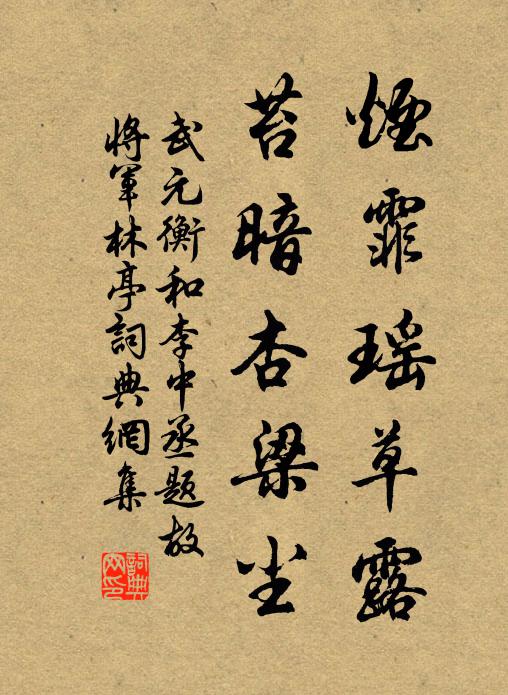 煙霏瑶草露
苔暗杏梁尘
武元衡和李中丞题故
将軍林亭詞典網集
詞典
网印